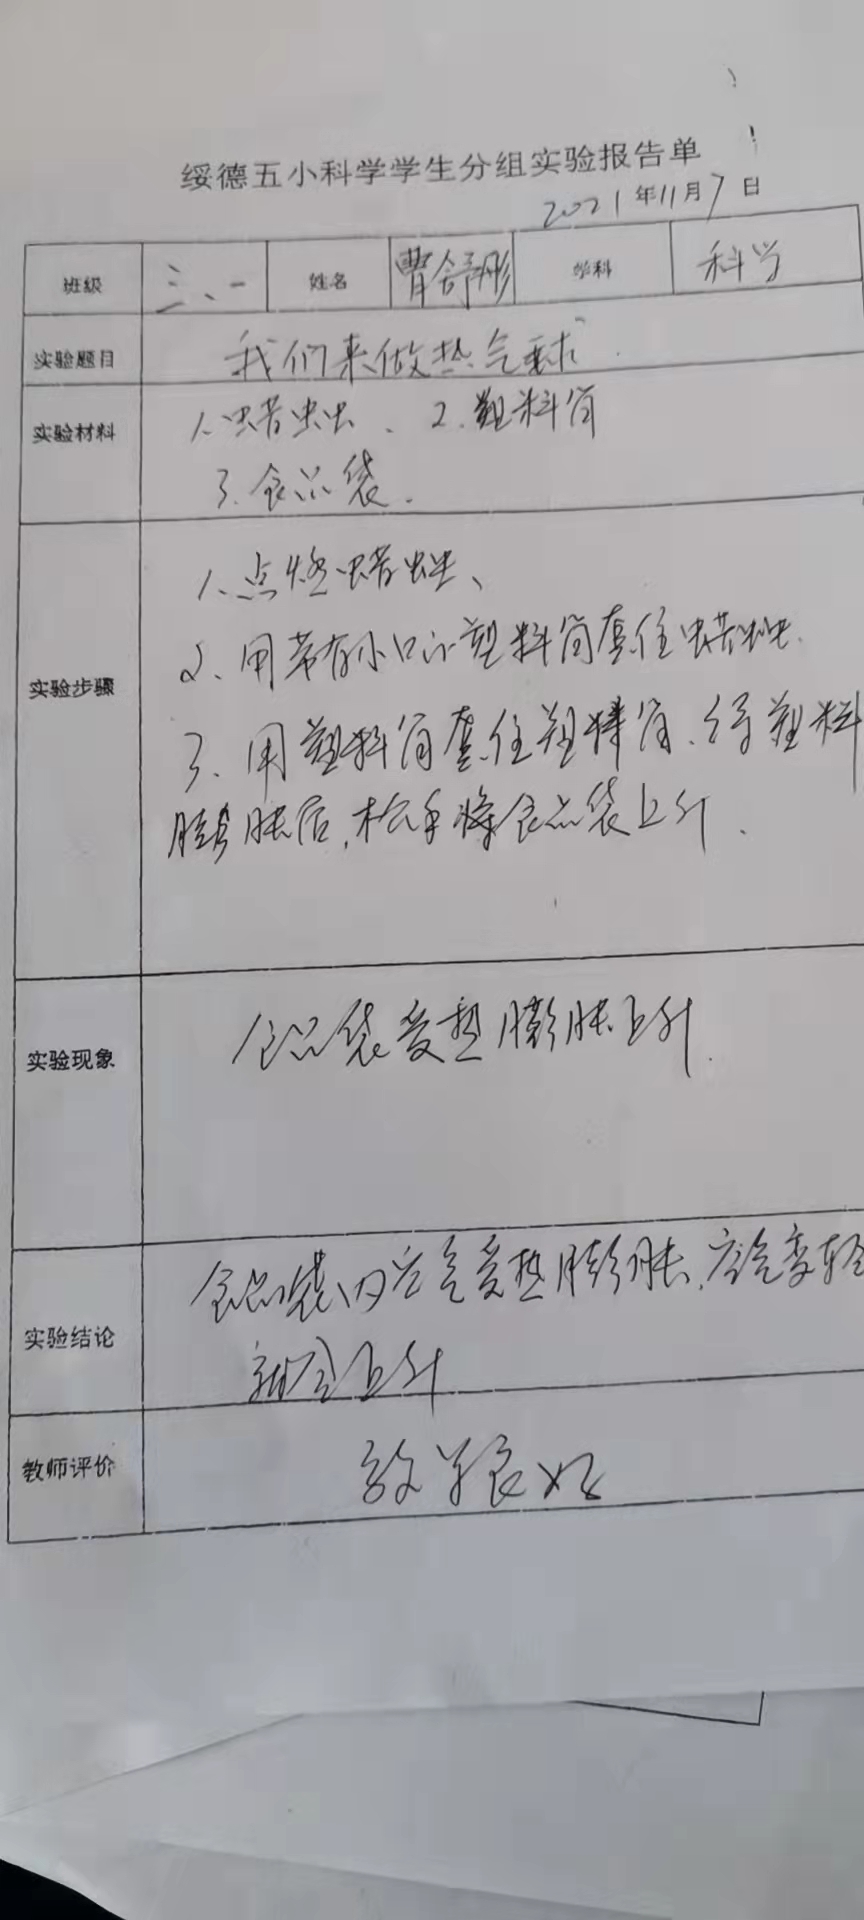 绥德五小科学学生分组实验报告单
2021年11月7日
班级 三、一 姓名 曹舒彤 学科 科学
实验题目 我们来做热气球.
实验材料 1.蜡虫虫、2.塑料筒
3.食品袋.
实验步骤
1.点燃蜡蛀、
2、用带有小口的塑料筒套住蜡蛀.
3、用塑料筒套住塑料筒、待塑料
膨胀后,松手将食品袋上升.
实验现象 食品袋受热膨胀上升.
实验结论 食品袋内空气受热膨胀,空气变轻
就会上升
教师评价 效果很好